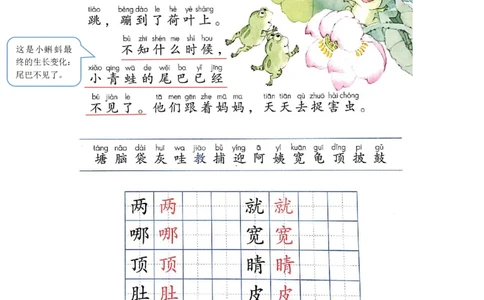 tiào bèng dào le hé yè shàng
跳，蹦到了荷叶上。
这是小蝌蚪最
终的生长变化：
尾巴不见了。
bù zhī shén me shí hou
不知什么时候，
xiǎo qīng wā de wěi ba yǐ jīng
小青蛙的尾巴已经
bú jiàn le tā men gēn zhe mā ma tiān tiān qù zhuō hài chóng
不见了。他们跟着妈妈，天天去捉害虫。
táng nǎo dài huī wa jiāo bǔ yíng ā yí kuān guī dǐng pī gǔ
塘脑袋灰哇教捕迎阿姨宽龟顶披鼓
两两 就就
哪哪 宽宽
顶顶 睛睛
肚肚 皮皮